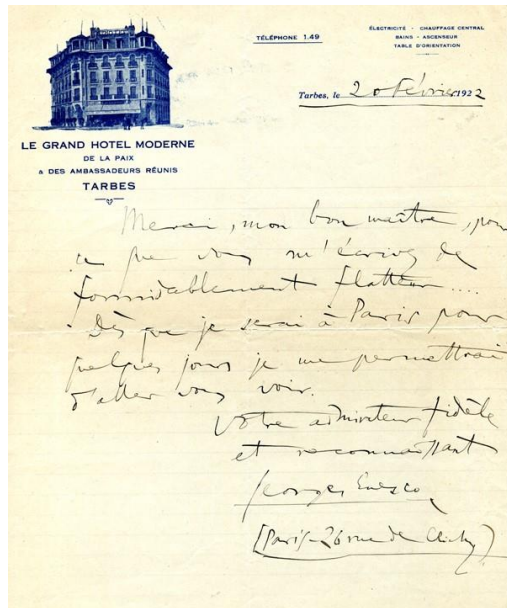 HOTEL
TÉLÉPHONE 1.49
ÉLECTRICITÉ - CHAUFFAGE CENTRAL
BAINS - ASCENSEUR
TABLE D'ORIENTATION
Tarbes, le 20 Février 1922
LE GRAND HOTEL MODERNE
DE LA PAIX
& DES AMBASSADEURS RÉUNIS
TARBES
Merci, mon bon maître, pour
ce que vous m'écrivez de
formidablement flatteur....
Dès que je serai à Paris pour
quelques jours je me permettrai
d'aller vous voir.
Votre admirateur fidèle
et reconnaissant
Georges Enesco
(Paris - 26 rue de Clichy)